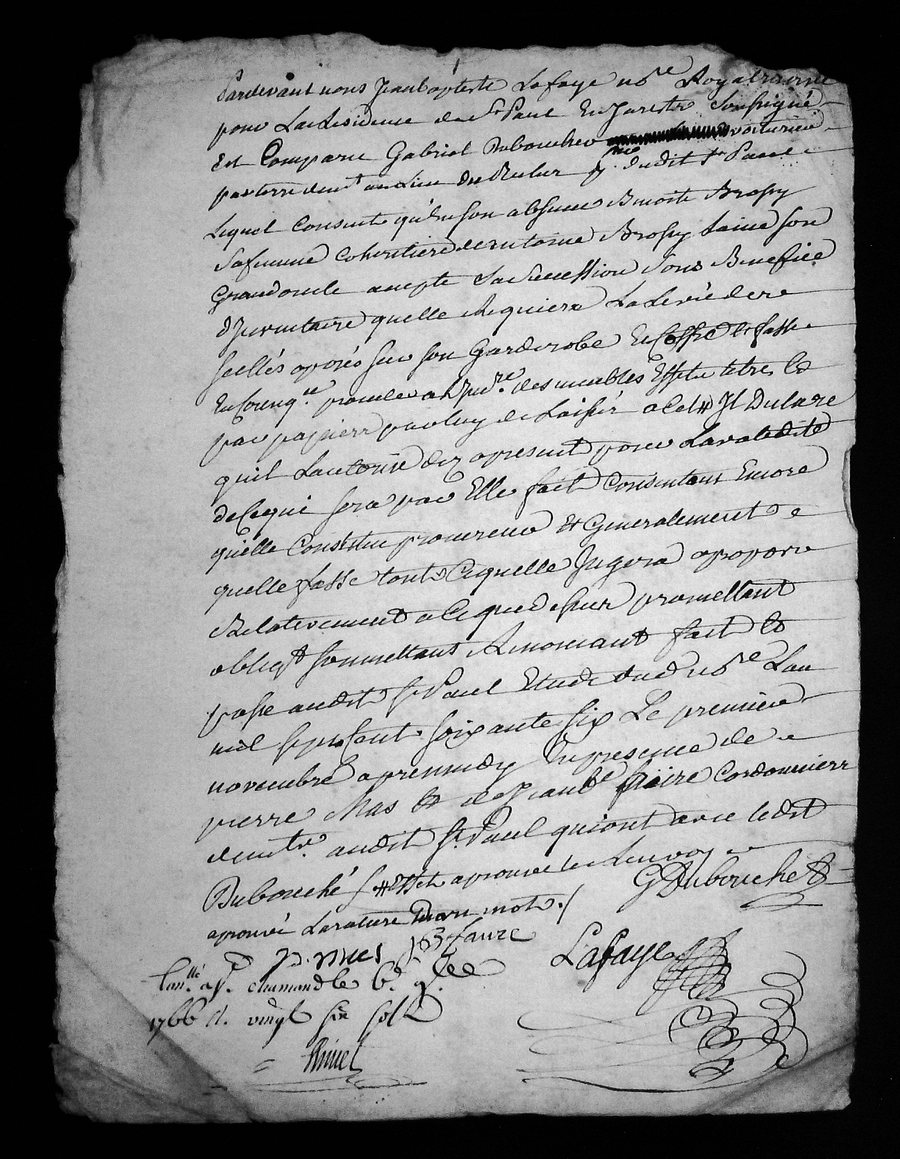 Pardevant nous Jean baptiste Lafaye no.re Royal
pour La Residence de St Paul En Jarest Soussigné
Est Comparu Gabriel Dubouchet voiturier
par terre demt. au Lieu du dudit St Paul
Lequel Consent qu'En son absence Benoite Brossy
Sa femme Coheritiere de Brossy Son
Grandoncle accepte Sa Succession Sous Benefice
d'Inventaire quelle Requiere La Levée de ce
scellés aposés sur son Garderobe Et Coffre Et fasse
En Conseqce. proceder a Invre. des meubles Effets titres Et
papiers par luy de Laissés
quil Lautorise dez apresent pour La validité
de Ce qui sera par Elle fait Consentant Encore
quelle Constitue procureur Et Generalement
quelle fasse tout Ce quelle Jugera apropos
Relativement a Ce que dessus promettant
obligt Soumettant Renoncant fait Et
passé audit St Paul Etude dud no.re Lan
mil sept cent soixante six Le premier
novembre apres midy En presence de
pierre Mas Et de Jean Bte. faure Cordonnier
demts. audit St. Paul qui ont avec ledit
Dubouché aprouvé le Renvoy
aprouvé La rature d'un mot ./
G Dubouchet
p. mas jb faure
Lafaye
a St. chamond le
1766 R. vingt six sols